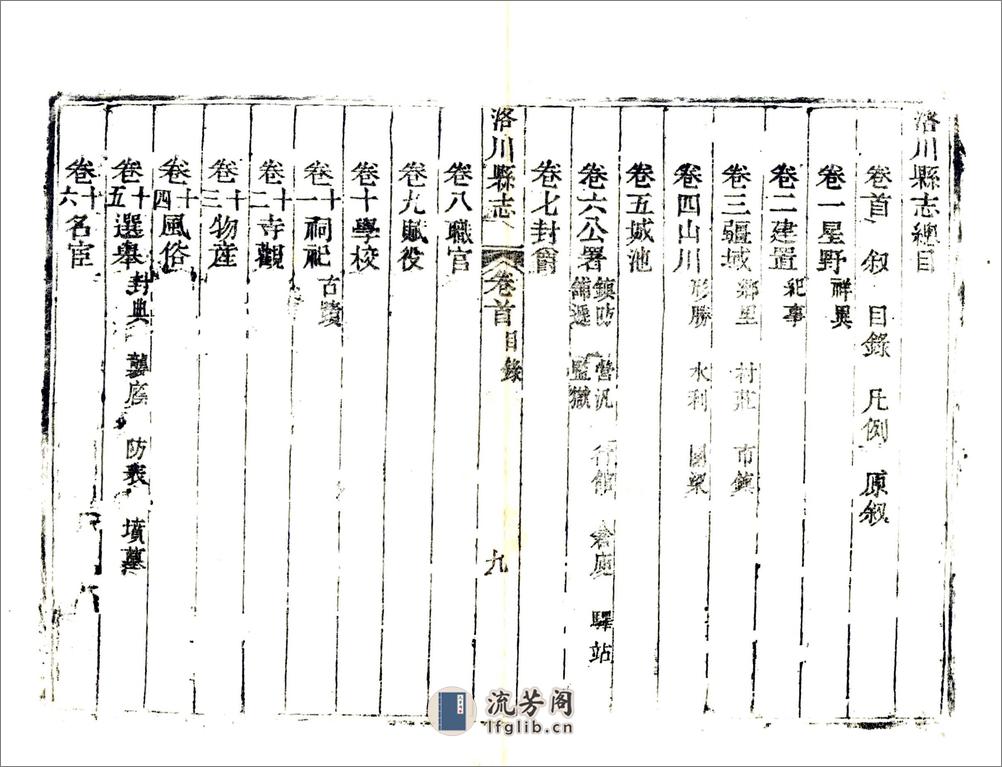 洛川縣志總目
卷首 叙 目錄 凡例 原叙
卷一星野 祥異
卷二建置 紀事
卷三疆域 鄉里 村莊 市鎮
卷四山川 形勝 水利 關梁
卷五城池
卷六公署 鎮防 營汛 行館 倉廒 驛站
舖遞 監獄
卷七封爵
洛川縣志 卷首 目錄 九
卷八職官
卷九賦役
卷十學校
卷十一祠祀 古蹟
卷十二寺觀
卷十三物產
卷十四風俗
卷十五選舉 封典 襲廕 防表 墳墓
卷十六名宦
流芳阁
lfglib.cn